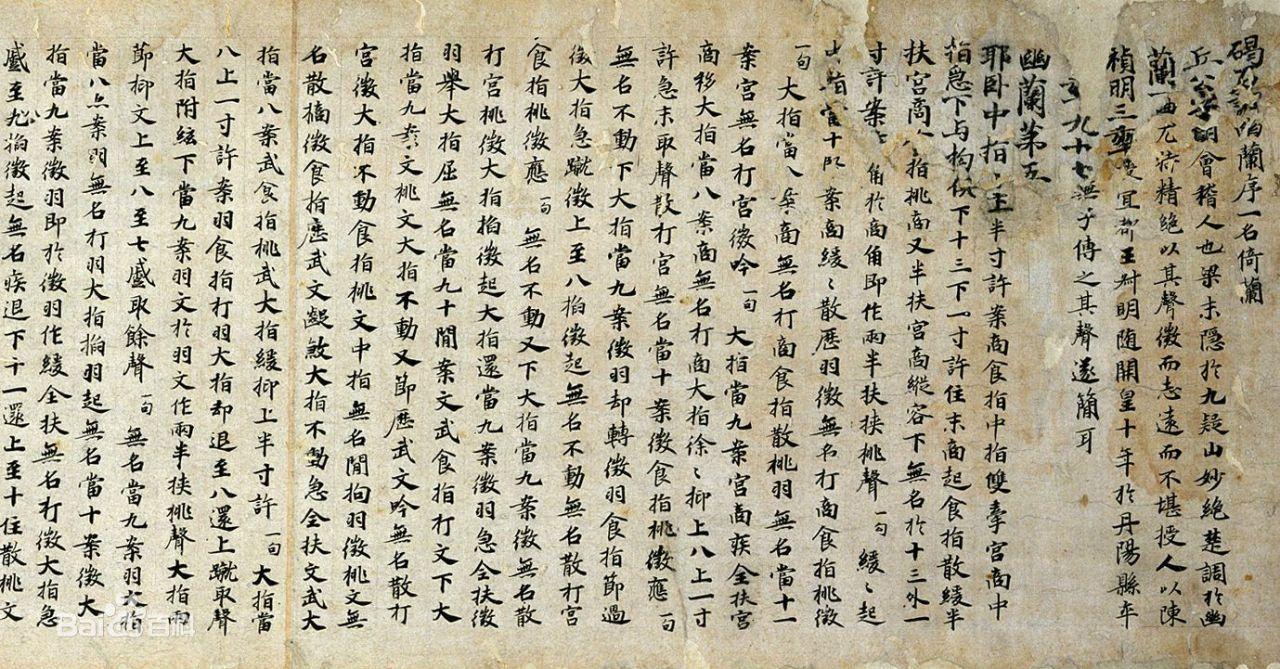 碣石調幽蘭序一名倚蘭
丘公字明會稽人也梁末隱於九疑山妙絕楚調於幽
蘭一曲尤精絕以其聲微而志遠而不堪授人以陳
禎明三年授宜都王叔明隨開皇十年於丹陽縣卒
年九十七無子傳之其聲遂簡耳
幽蘭第五
耶卧中指〻半寸許案商食指中指雙牽宮商中
指急下与拘俱下十三下一寸許住末商起食指散緩半
扶宮商食指挑商又半扶宮商縱容下無名於十三外一
寸許案商角於商角即作兩半扶挾挑聲一句緩〻起
案商緩〻散歷羽徵無名打商食指挑徵
一句大指當八案商無名打商食指散挑羽無名當十一
案宮無名打宮徵吟一句大指當九案宮商疾全扶宮
商移大指當八案商無名打商大指徐〻抑上八上一寸
許急末取聲散打宮無名當十案徵食指挑徵應一句
無名不動下大指當九案徵羽却轉徵羽食指節過
徵大指急蹴徵上至八掐徵起無名不動無名散打宮
食指挑徵應一句無名不動又下大指當九案徵無名散
打宮桃徵大指掐徵起大指還當九案徵羽急全扶徵
羽舉大指屈無名當九十間案文武食指打文下大
指當九案文挑文大指不動又節歷武文吟無名散打
宮徵大指不動食指挑文中指無名間拘羽徵挑文無
名散擿徵食指歷武文大指不動急全扶文武大
指當八案武食指挑武大指緩抑上半寸許一句大指當
八上一寸許案羽食指打羽大指却退至八還上蹴取聲
大指附絃下當九案羽文於羽文作兩半扶挾挑聲大指兩
節抑文上至八至七蹙取餘聲一句無名當九案羽大指
當八案羽無名打羽大指掐羽起無名當十案徵大
指當九案徵羽即於徵羽作緩全扶無名打徵大指急
蹙至九掐徵起無名疾退下十一還上至十住散挑文
Baidu百科